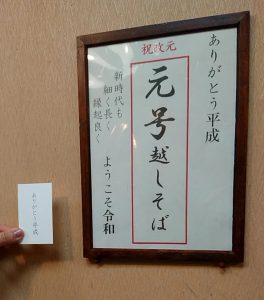 ありがとう平成
祝改元
元号越しそば
新時代も
細く長く
縁起良く
ようこそ令和
ありがとう平成